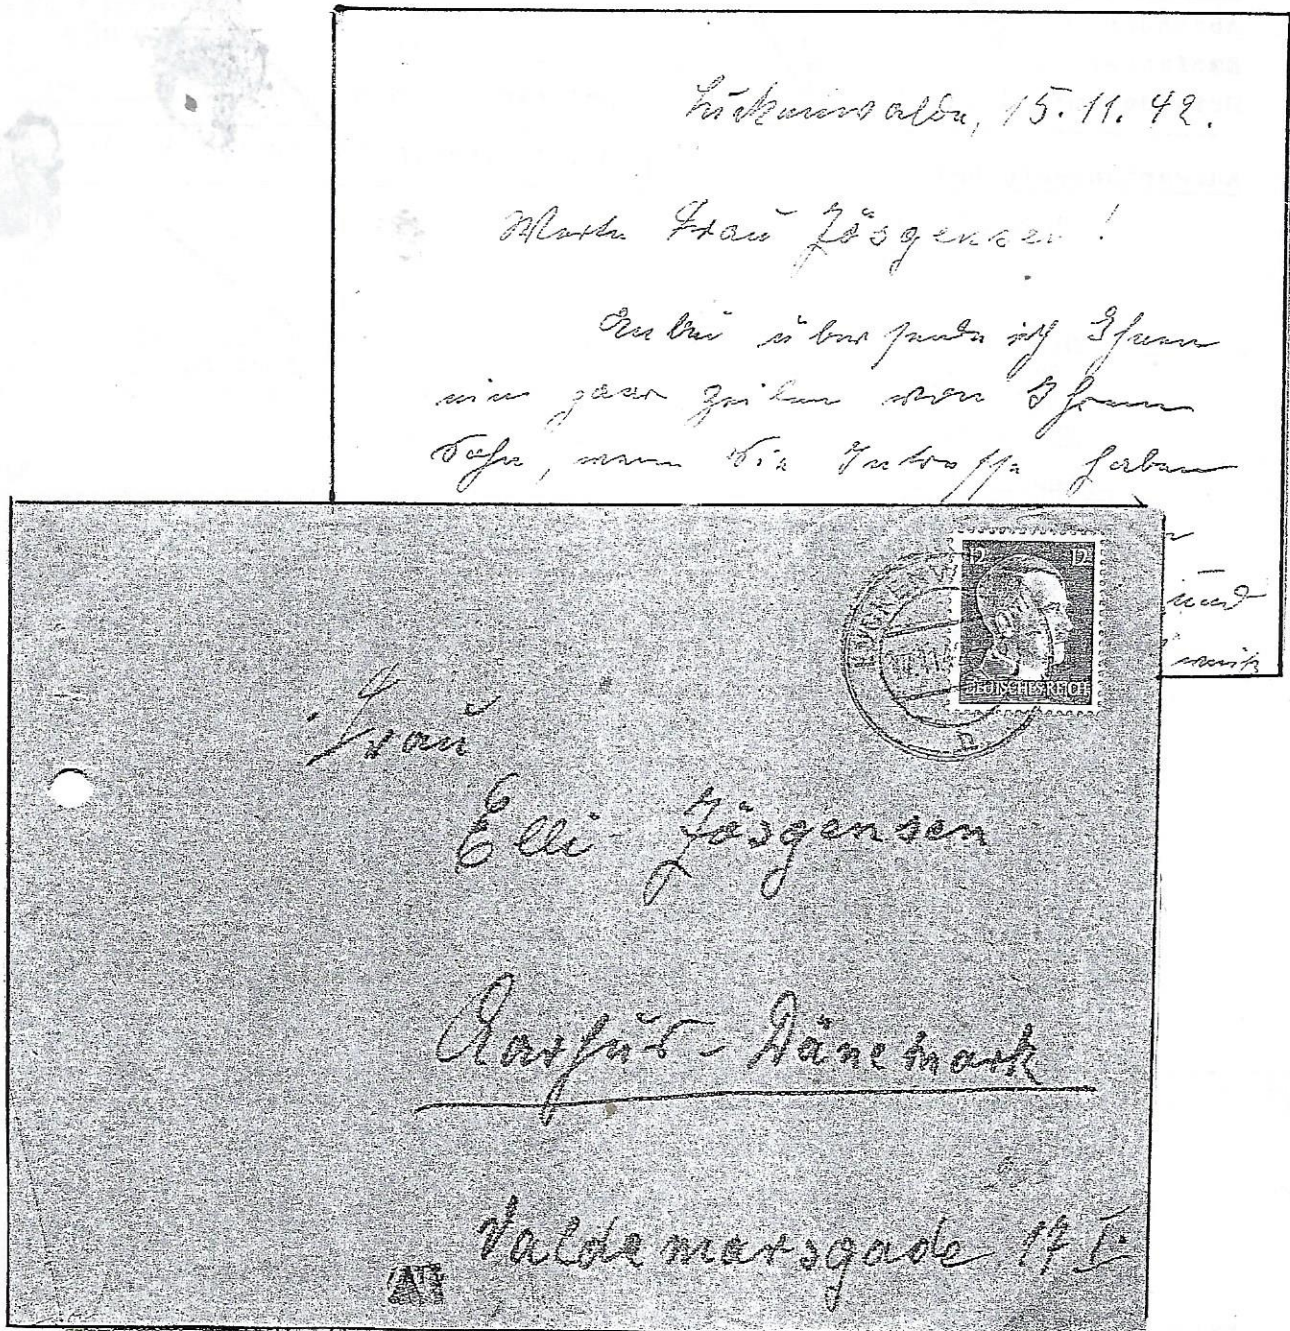 Luckenwalde, 15.11.42.
Werte Frau Jörgensen!
Anbei übersende ich Ihnen
ein paar Zeilen von Ihrem
Sohn, wenn Sie Intresse haben
und
mich
12 12
DEUTSCHES REICH
LUCKENW
17.11.4
n
Frau
Elli Jörgensen
Aarhus - Dänemark
Valdemarsgade 17 I.